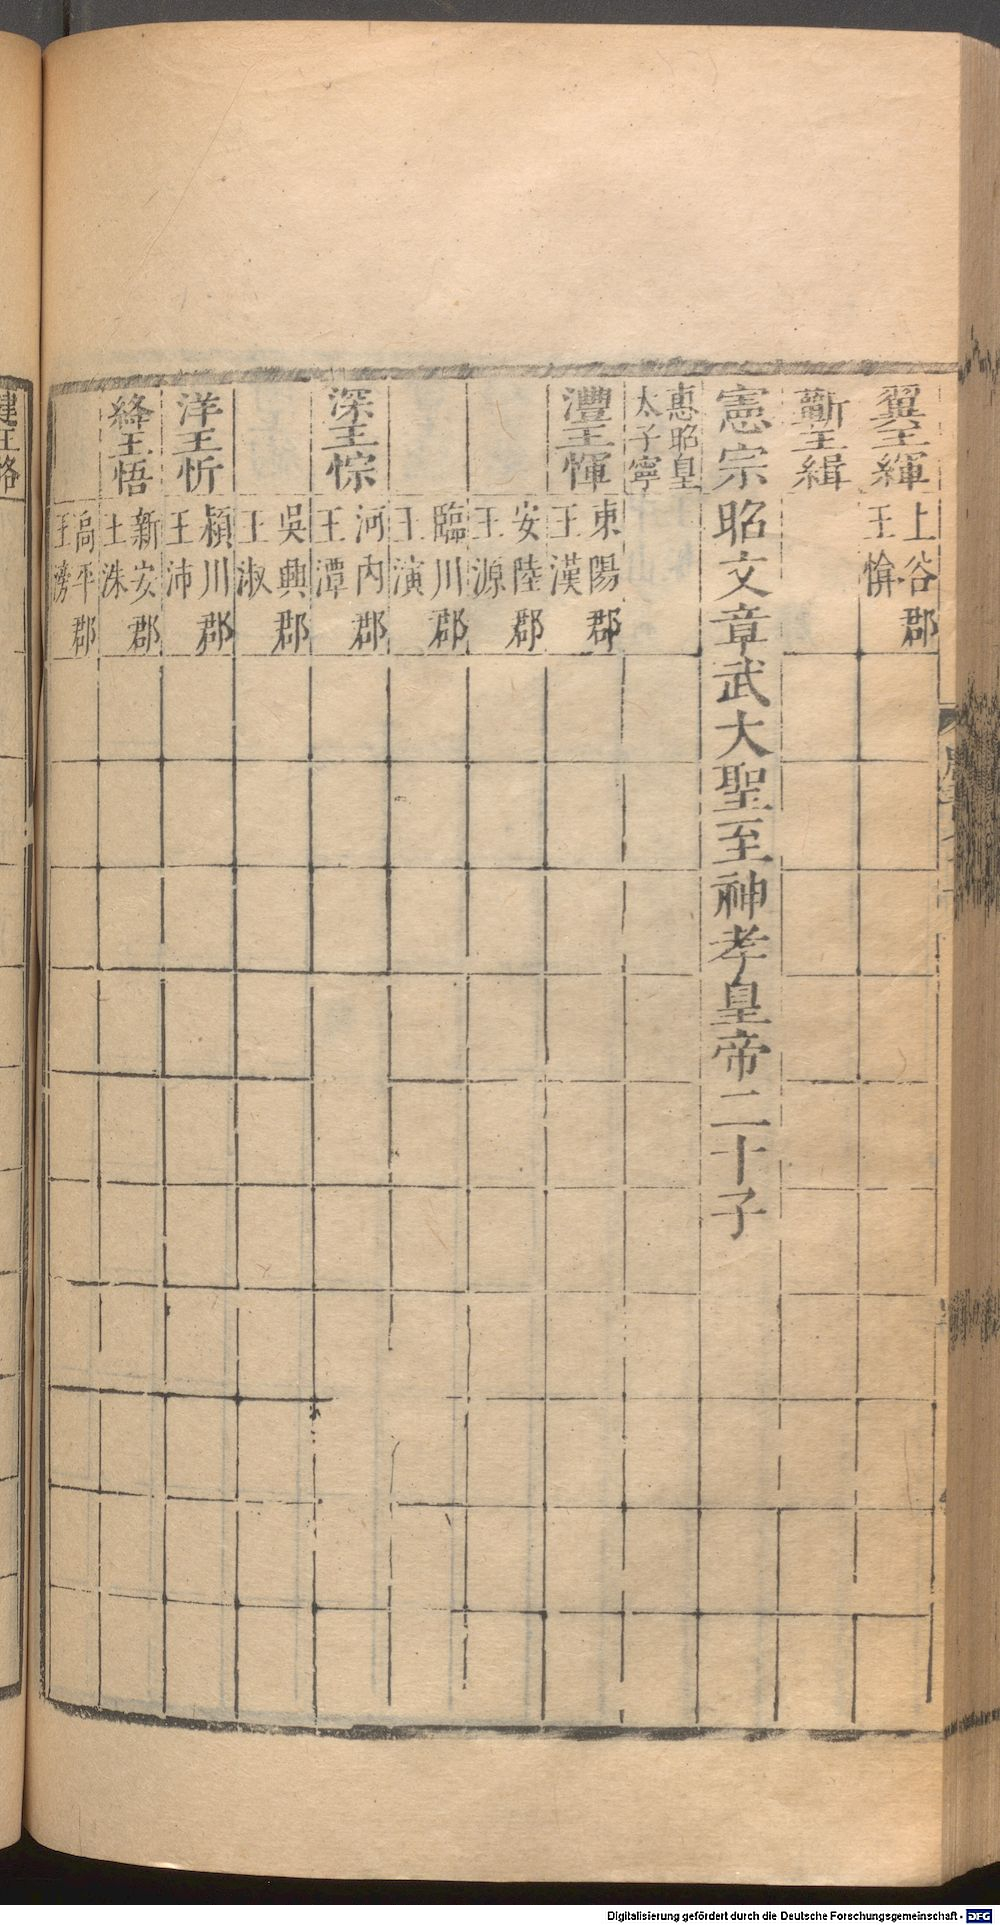 翼王繟
上谷郡
王
蘄王緝
憲宗昭文章武大聖至神孝皇帝二十子
惠昭皇
太子寧
澧王惲
東陽郡
王漢
安陸郡
王源
臨川郡
王演
深王悰
河內郡
王潭
吳興郡
王淑
洋王忻
潁川郡
王沛
絳王悟
新安郡
王洙
高平郡
王滂
建王恪
Digitalisierung gefördert durch die Deutsche Forschungsgemeinschaft - DFG